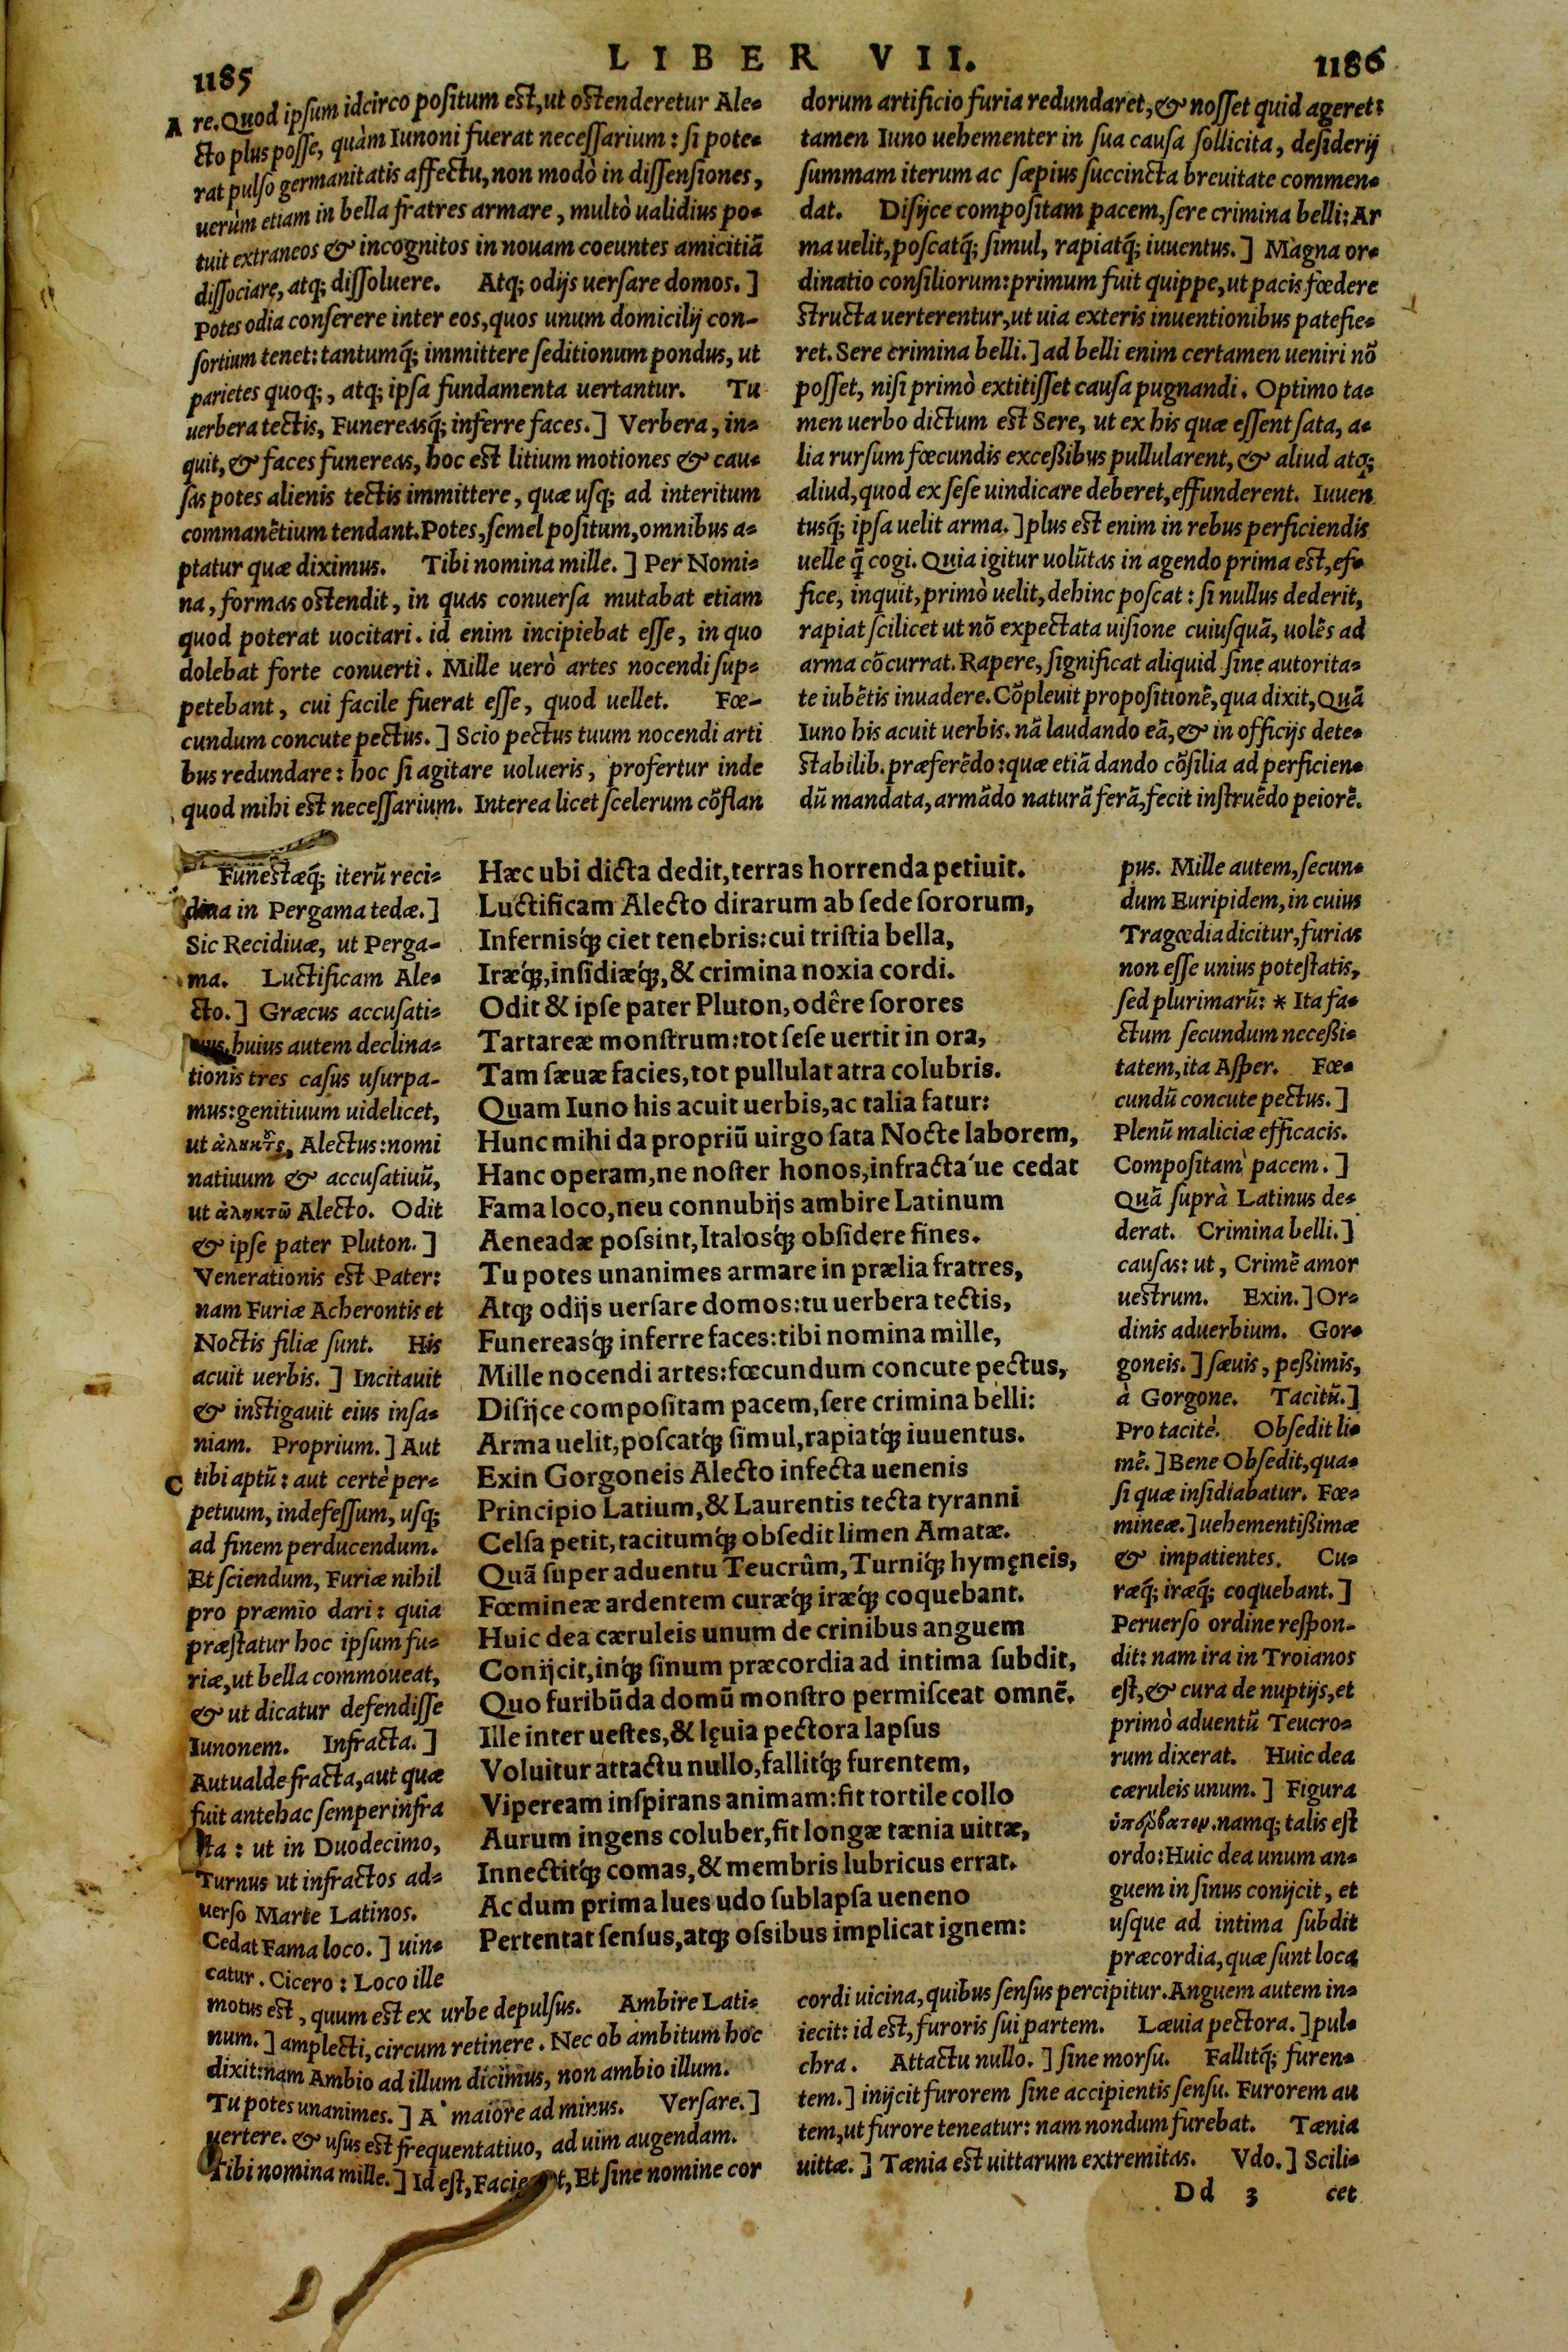 LIBER VII.
1185
1186
A re. Quod ipsum idcirco positum est, ut ostenderetur Ale-
cto plus posse, quàm Iunoni fuerat necessarium: si pote-
rat pulso germanitatis affectu, non modò in dissensiones,
uerùm etiam in bella fratres armare, multò ualidius po-
tuit extraneos & incognitos in nouam coeuntes amicitiã
dissociare, atq; dissoluere. Atq; odijs uersare domos.]
Potes odia conserere inter eos, quos unum domicilij con-
sortium tenet: tantumq́; immittere seditionum pondus, ut
parietes quoq;, atq; ipsa fundamenta uertantur. Tu
uerbera tectis, Funereasq́; inferre faces.] Verbera, in-
quit, & faces funereas, hoc est litium motiones & cau-
sas potes alienis tectis immittere, quæ usq; ad interitum
commanẽtium tendant. Potes, semel positum, omnibus a-
ptatur quæ diximus. Tibi nomina mille.] Per Nomi-
na, formas ostendit, in quas conuersa mutabat etiam
quod poterat uocitari. id enim incipiebat esse, in quo
dolebat forte conuerti. Mille uerò artes nocendi sup-
petebant, cui facile fuerat esse, quod uellet. Fœ-
cundum concute pectus.] Scio pectus tuum nocendi arti
bus redundare: hoc si agitare uolueris, profertur inde
quod mihi est necessarium. Interea licet scelerum cõflan
dorum artificio furia redundaret, & nosset quid ageret:
tamen Iuno uehementer in sua causa sollicita, desiderij
summam iterum ac sæpius succincta breuitate commen-
dat. Disijce compositam pacem, sere crimina belli: Ar
ma uelit, poscatq́; simul, rapiatq́; iuuentus.] Magna or-
dinatio consiliorum: primum fuit quippe, ut pacis fœdere
structa uerterentur, ut uia exteris inuentionibus patefie-
ret. Sere crimina belli.] ad belli enim certamen ueniri nõ
posset, nisi primò extitisset causa pugnandi. Optimo ta-
men uerbo dictum est Sere, ut ex his quæ essent sata, a-
lia rursum fœcundis excessibus pullularent, & aliud atq;
aliud, quod ex sese uindicare deberet, effunderent. Iuuen
tusq́; ipsa uelit arma.] plus est enim in rebus perficiendis
uelle q̃ cogi. Quia igitur uolũtas in agendo prima est, ef-
fice, inquit, primò uelit, dehinc poscat: si nullus dederit,
rapiat scilicet ut nõ expectata uisione cuiusquã, uolẽs ad
arma cõcurrat. Rapere, significat aliquid sine autorita-
te iubẽtis inuadere. Cõpleuit propositionẽ, qua dixit, Quã
Iuno his acuit uerbis. nã laudando eã, & in officijs dete-
stabilib. præferẽdo: quæ etiã dando cõsilia ad perficien-
dũ mandata, armãdo naturã ferã, fecit instruẽdo peiorẽ.
Funestæq́; iterũ reci-
diua in Pergama tedæ.]
Sic Recidiuæ, ut Perga-
ma. Luctificam Ale-
cto.] Græcus accusati-
uus, huius autem declina-
tionis tres casus usurpa-
mus: genitiuum uidelicet,
ut ἀληκτοῦς, Alectus: nomi
natiuum & accusatiuũ,
ut ἀληκτὼ Alecto. Odit
& ipse pater Pluton.]
Venerationis est Pater:
nam Furiæ Acherontis et
Noctis filiæ sunt. His
acuit uerbis.] Incitauit
& instigauit eius insa-
niam. Proprium.] Aut
C tibi aptũ: aut certè per-
petuum, indefessum, usq;
ad finem perducendum.
Et sciendum, Furiæ nihil
pro præmio dari: quia
præstatur hoc ipsum fu-
riæ, ut bella commoueat,
& ut dicatur defendisse
Iunonem. Infracta.]
Aut ualde fracta, aut quæ
fuit antehac semper infra
cta: ut in Duodecimo,
Turnus ut infractos ad-
uerso Marte Latinos.
Cedat Fama loco.] uin-
catur. Cicero: Loco ille
motus est, quum est ex urbe depulsus. Ambire Lati-
num.] amplecti, circum retinere. Nec ob ambitum hoc
dixit: nam Ambio ad illum dicimus, non ambio illum.
Tu potes unanimes.] A' maiore ad minus. Versare.]
uertere. & usus est frequentatiuo, ad uim augendam.
Tibi nomina mille.] Id est, Et sine nomine cor
Hæc ubi dicta dedit, terras horrenda petiuit.
Luctificam Alecto dirarum ab sede sororum,
Infernisq́; ciet tenebris: cui tristia bella,
Iræq́;, insidiæq́;, & crimina noxia cordi.
Odit & ipse pater Pluton, odêre sorores
Tartareæ monstrum: tot sese uertit in ora,
Tam sæuæ facies, tot pullulat atra colubris.
Quam Iuno his acuit uerbis, ac talia fatur:
Hunc mihi da propriũ uirgo sata Nocte laborem,
Hanc operam, ne noster honos, infracta'ue cedat
Fama loco, neu connubijs ambire Latinum
Aeneadæ possint, Italosq́; obsidere fines.
Tu potes unanimes armare in prælia fratres,
Atq; odijs uersare domos: tu uerbera tectis,
Funereasq́; inferre faces: tibi nomina mille,
Mille nocendi artes: fœcundum concute pectus,
Disijce compositam pacem, sere crimina belli:
Arma uelit, poscatq́; simul, rapiatq́; iuuentus.
Exin Gorgoneis Alecto infecta uenenis
Principio Latium, & Laurentis tecta tyranni
Celsa petit, tacitumq́; obsedit limen Amatæ.
Quã super aduentu Teucrûm, Turniq́; hymęneis,
Fœmineæ ardentem curæq́; iræq́; coquebant.
Huic dea cæruleis unum de crinibus anguem
Conijcit, inq́; sinum præcordia ad intima subdit,
Quo furibũda domũ monstro permisceat omnẽ.
Ille inter uestes, & lęuia pectora lapsus
Voluitur attactu nullo, fallitq́; furentem,
Vipeream inspirans animam: fit tortile collo
Aurum ingens coluber, fit longæ tænia uittæ,
Innectitq́; comas, & membris lubricus errat.
Ac dum prima lues udo sublapsa ueneno
Pertentat sensus, atq; ossibus implicat ignem:
pus. Mille autem, secun-
dum Euripidem, in cuius
Tragœdia dicitur, furias
non esse unius potestatis,
sed plurimarũ: * Ita fa-
ctum secundum necessi-
tatem, ita Asper. Fœ-
cundũ concute pectus.]
Plenũ maliciæ efficacis.
Compositam pacem.]
Quã suprà Latinus de-
derat. Crimina belli.]
causas: ut, Crimẽ amor
uestrum. Exin.] Or-
dinis aduerbium. Gor-
goneis.] sæuis, pessimis,
à Gorgone. Tacitũ.]
Pro tacitè. Obsedit li-
mẽ.] Bene Obsedit, qua-
si quæ insidiabatur. Fœ-
mineæ.] uehementissimæ
& impatientes. Cu-
ræq́; iræq́; coquebant.]
Peruerso ordine respon-
dit: nam ira in Troianos
est, & cura de nuptijs, et
primò aduentũ Teucro-
rum dixerat. Huic dea
cæruleis unum.] Figura
ὑπέρβατον. namq; talis est
ordo: Huic dea unum an-
guem in sinus conijcit, et
usque ad intima subdit
præcordia, quæ sunt loca
cordi uicina, quibus sensus percipitur. Anguem autem in-
iecit: id est, furoris sui partem. Læuia pectora.] pul-
chra. Attactu nullo.] sine morsu. Fallitq́; furen-
tem.] inijcit furorem sine accipientis sensu. Furorem au
tem, ut furore teneatur: nam nondum furebat. Tænia
uittæ.] Tænia est uittarum extremitas. Vdo.] Scili-
Dd 3 cet